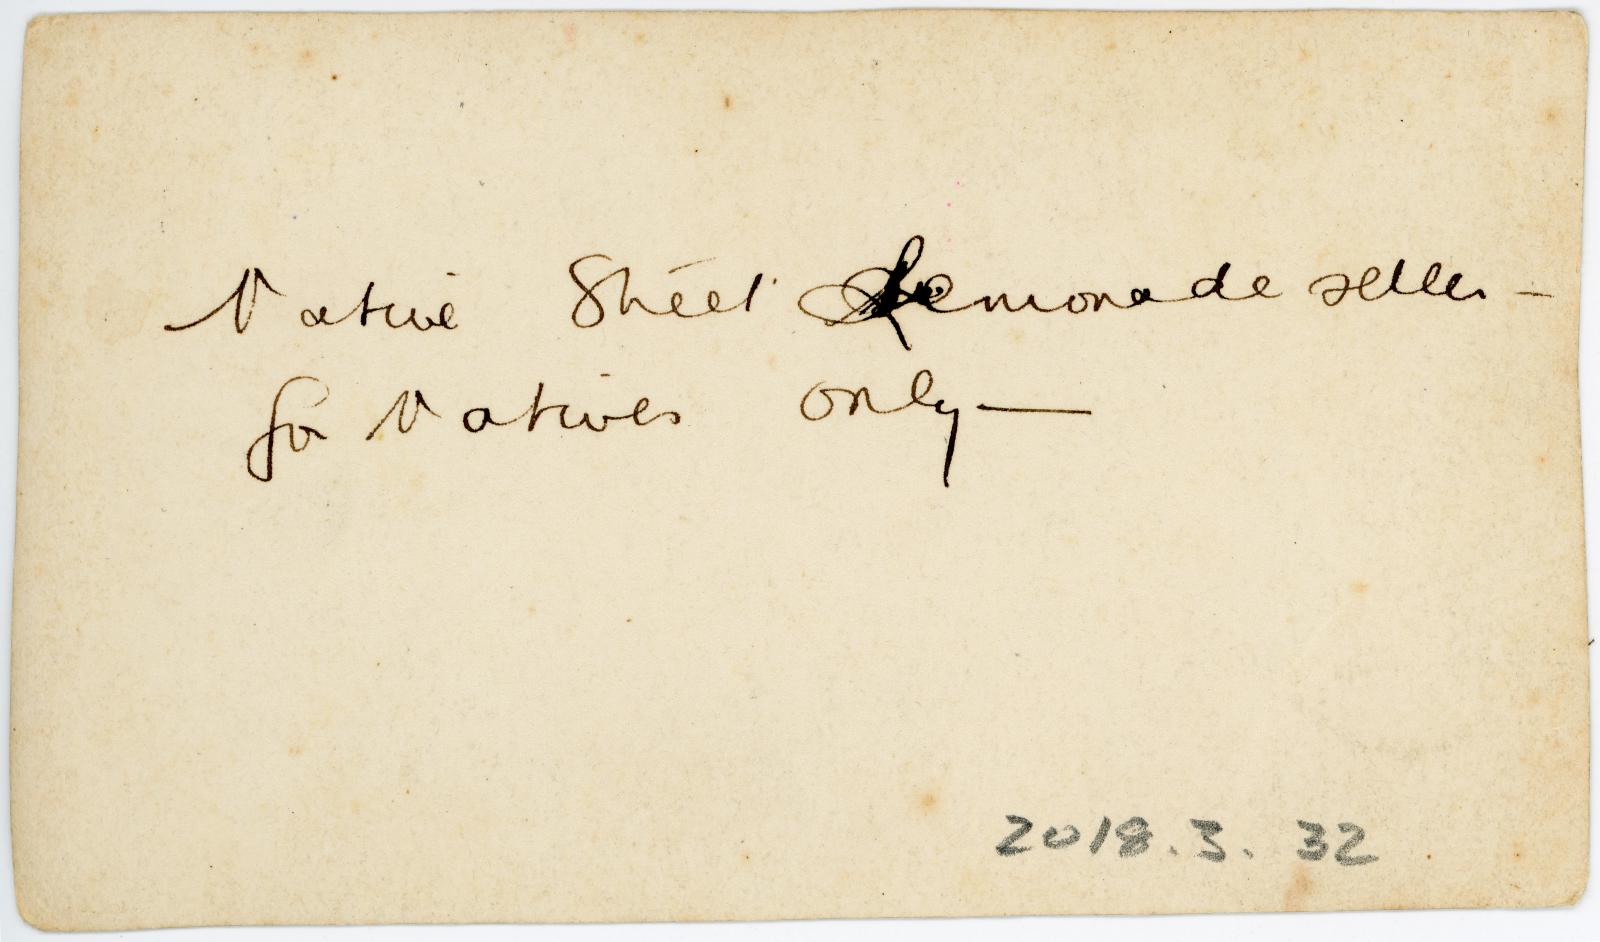 Native Street Lemonade seller –
for Natives only —
2018.3.32